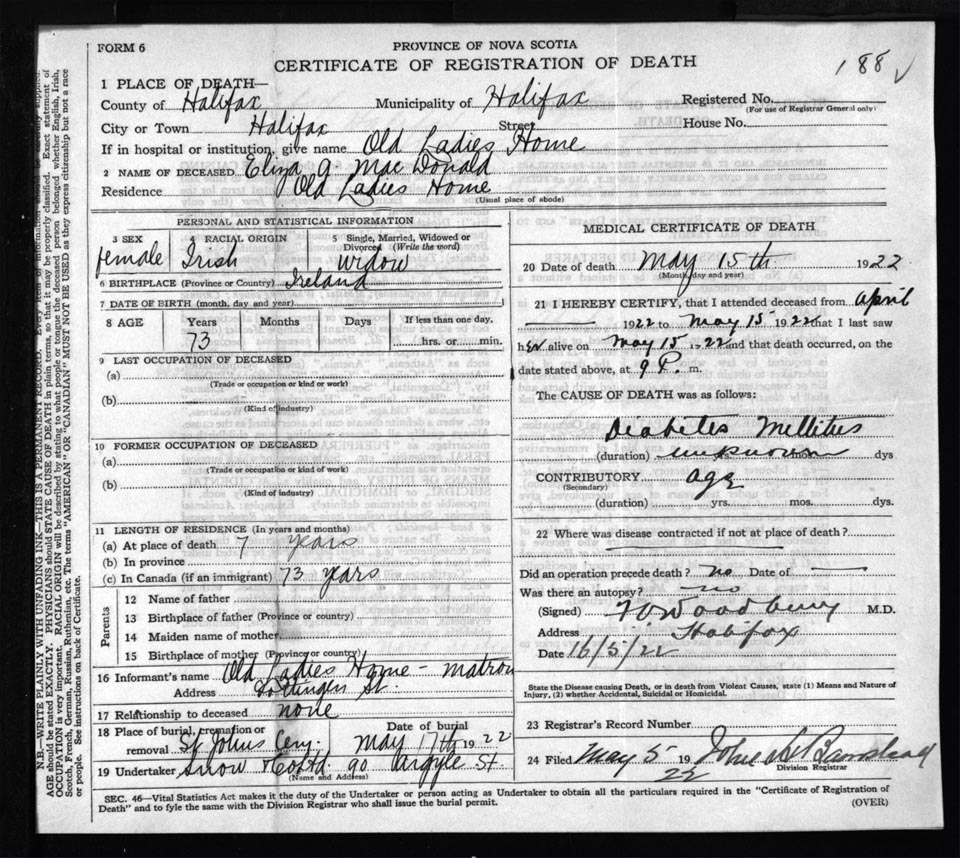 FORM 6
PROVINCE OF NOVA SCOTIA
CERTIFICATE OF REGISTRATION OF DEATH
188
1 PLACE OF DEATH—
County of Halifax Municipality of Halifax Registered No.
(For use of Registrar General only)
City or Town Halifax Street House No.
If in hospital or institution, give name Old Ladies Home
2 NAME OF DECEASED Eliza a MacDonald
Residence Old Ladies Home
(Usual place of abode)
PERSONAL AND STATISTICAL INFORMATION
3 SEX 4 RACIAL ORIGIN 5 Single, Married, Widowed or Divorced (Write the word)
female Irish widow
6 BIRTHPLACE (Province or Country) Ireland
7 DATE OF BIRTH (month, day and year)
8 AGE Years Months Days If less than one day,
73 hrs. or min.
9 LAST OCCUPATION OF DECEASED
(a)
(Trade or occupation or kind or work)
(b)
(Kind of industry)
10 FORMER OCCUPATION OF DECEASED
(a)
(Trade or occupation or kind of work)
(b)
(Kind of industry)
11 LENGTH OF RESIDENCE (In years and months)
(a) At place of death 7 years
(b) In province
(c) In Canada (if an immigrant) 73 years
Parents
12 Name of father
13 Birthplace of father (Province or country)
14 Maiden name of mother
15 Birthplace of mother (Province or country)
16 Informant's name Old Ladies Home - matron
Address Gottingen St.
17 Relationship to deceased none
18 Place of burial, cremation or removal St Johns Cem. Date of burial May 17th 1922
19 Undertaker Snow & Co Ltd 90 Argyle St.
(Name and Address)
MEDICAL CERTIFICATE OF DEATH
20 Date of death May 15th 1922
(Month, day and year)
21 I HEREBY CERTIFY, that I attended deceased from April
1922 to May 15 1922 that I last saw
her alive on May 15 1922 and that death occurred, on the
date stated above, at 9 P. m.
The CAUSE OF DEATH was as follows:
Diabetes Mellitus
(duration) unknown dys
CONTRIBUTORY age
(Secondary)
(duration) yrs. mos. dys.
22 Where was disease contracted if not at place of death?
Did an operation precede death? no Date of
Was there an autopsy? no
(Signed) Woodbury M.D.
Address Halifax
Date 16/5/22
State the Disease causing Death, or in death from Violent Causes, state (1) Means and Nature of
Injury, (2) whether Accidental, Suicidal or Homicidal.
23 Registrar's Record Number
24 Filed May 5 1922 John
Division Registrar
SEC. 46—Vital Statistics Act makes it the duty of the Undertaker or person acting as Undertaker to obtain all the particulars required in the "Certificate of Registration of
Death" and to fyle the same with the Division Registrar who shall issue the burial permit.
(OVER)
N.B.—WRITE PLAINLY WITH UNFADING INK—THIS IS A PERMANENT RECORD. Every item of information should be carefully supplied.
AGE should be stated EXACTLY. PHYSICIANS should STATE CAUSE OF DEATH in plain terms, so that it may be properly classified. Exact statement of
OCCUPATION is very important. RACIAL ORIGIN will be described by stating to what people or tongue the deceased person belonged whether English, Irish,
Scotch, French, German, Russian, Ruthenian, etc. The terms "AMERICAN" OR "CANADIAN" MUST NOT BE USED as they express citizenship but not a race
or people. See instructions on back of Certificate.